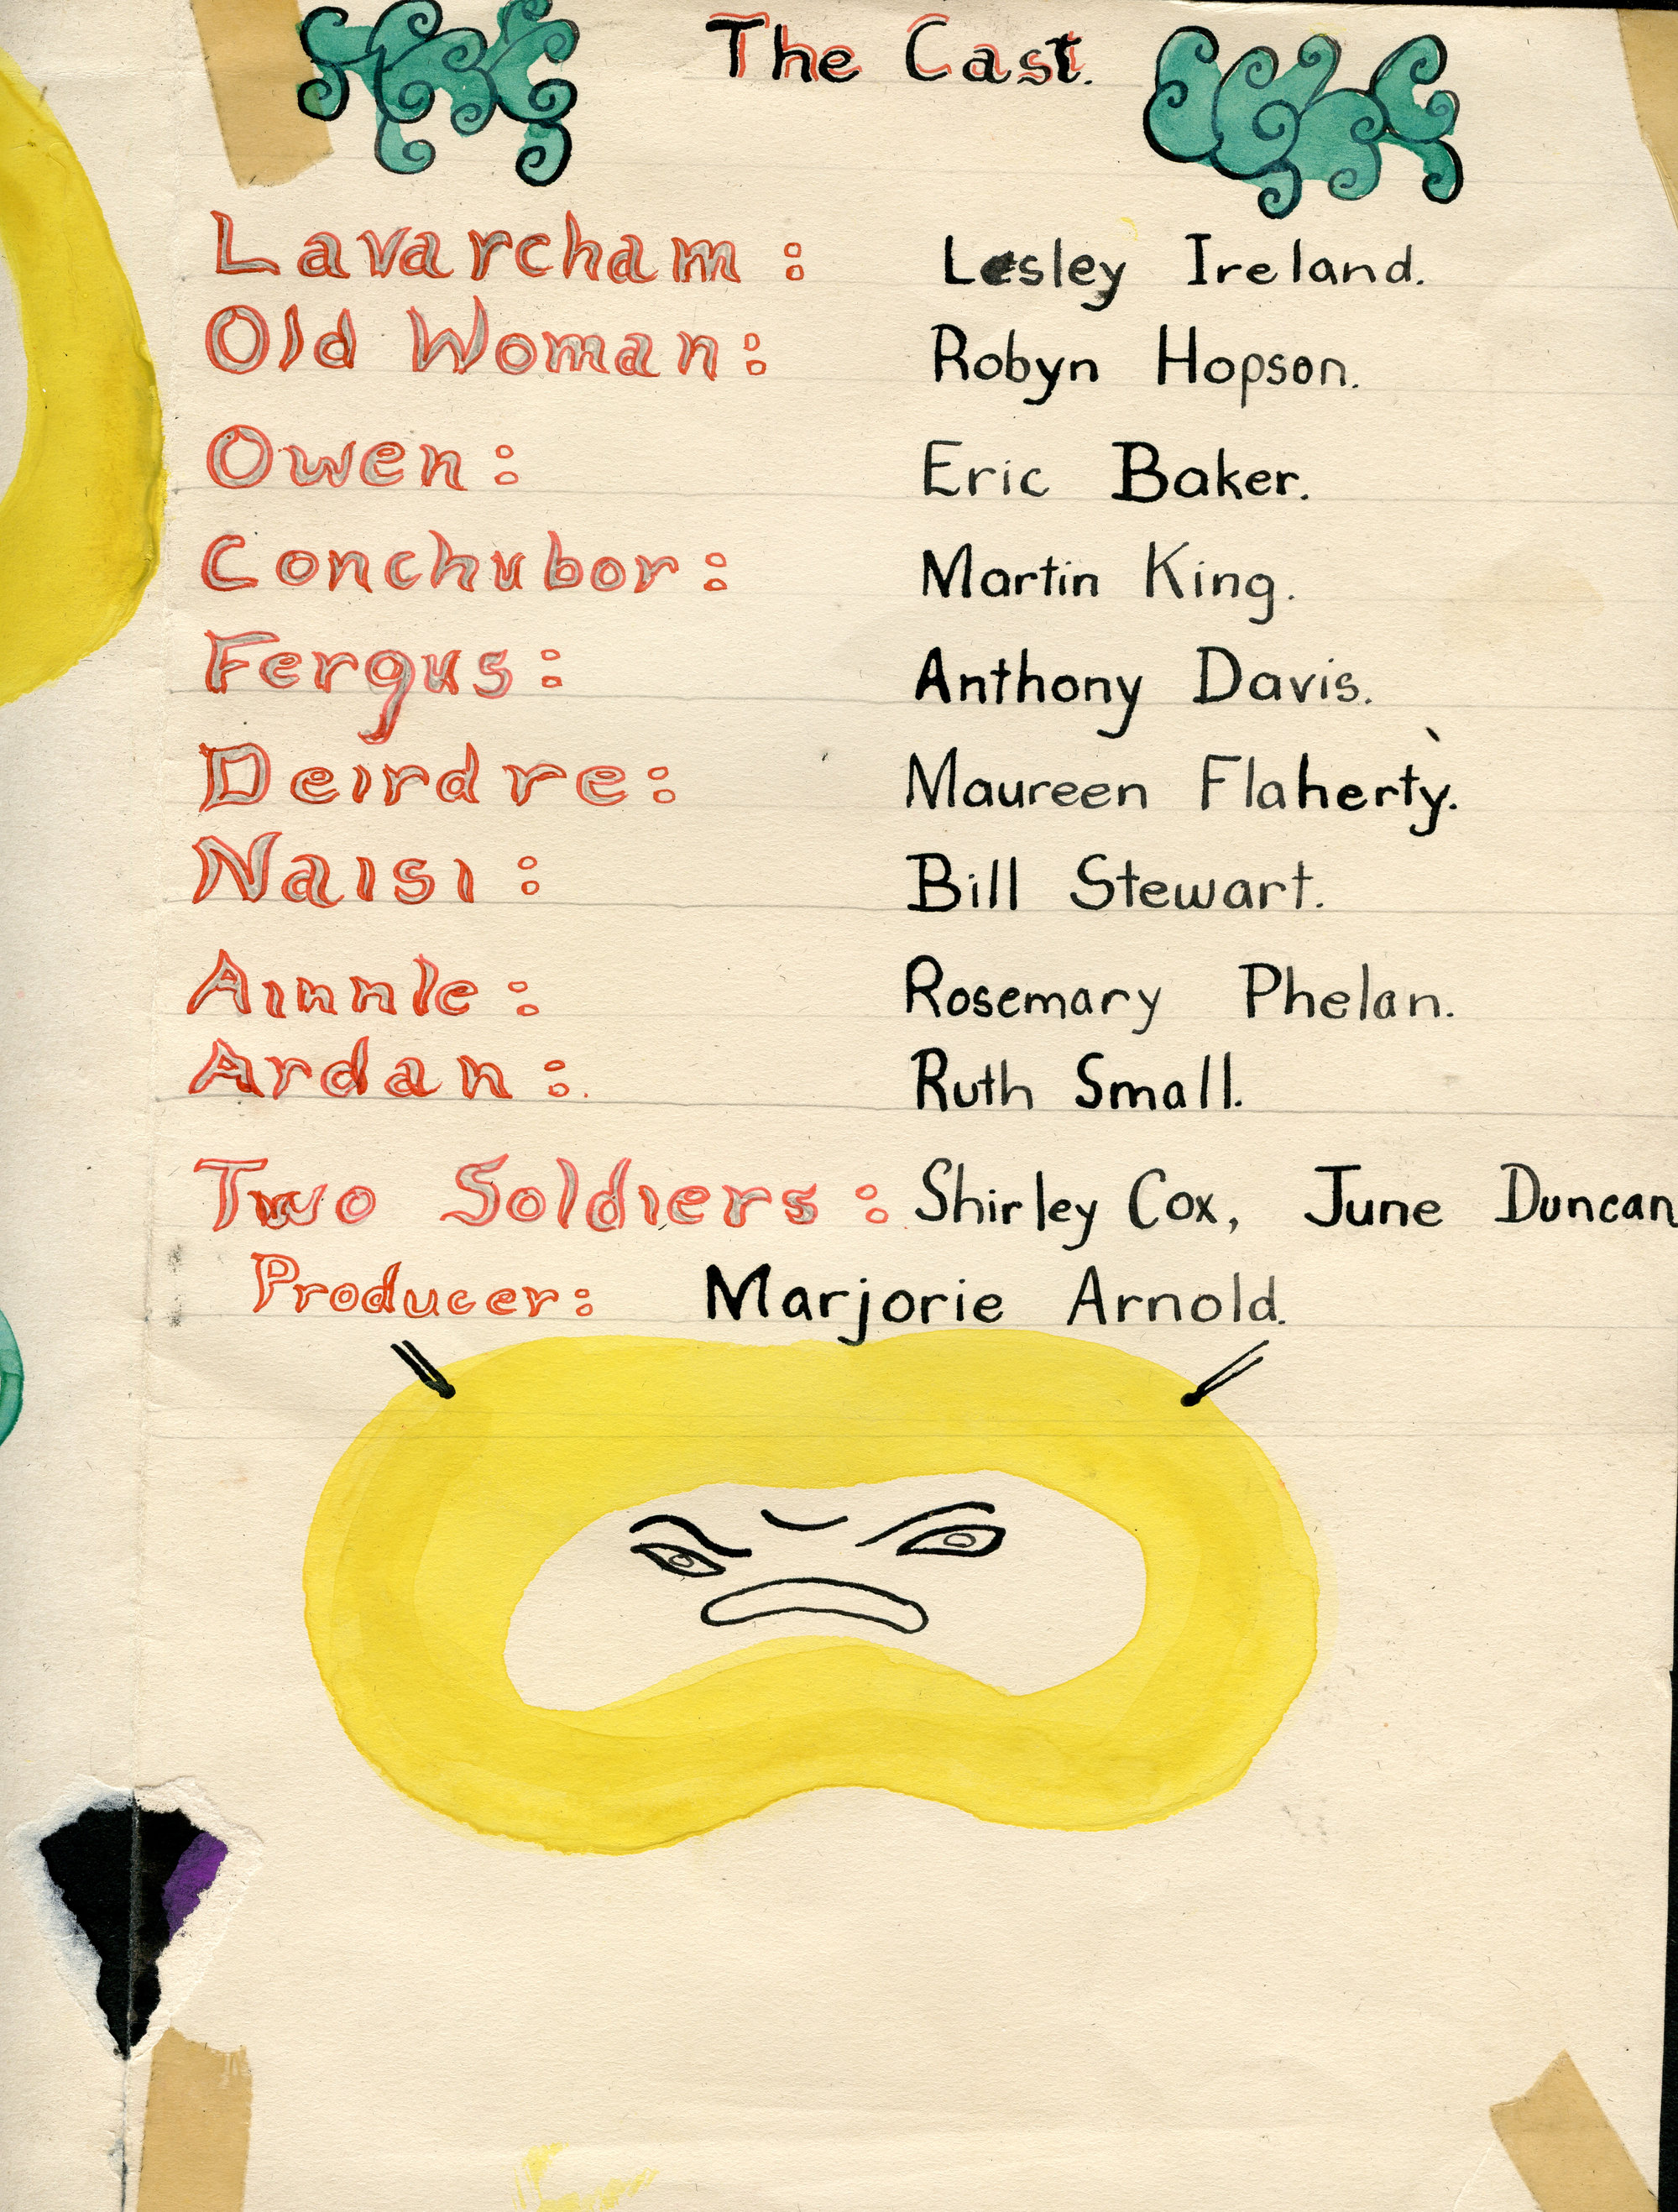 The Cast.
Lavarcham: Lesley Ireland.
Old Woman: Robyn Hopson.
Owen: Eric Baker.
Conchubor: Martin King.
Fergus: Anthony Davis.
Deirdre: Maureen Flaherty.
Naisi: Bill Stewart.
Ainnle: Rosemary Phelan.
Ardan: Ruth Small.
Two Soldiers: Shirley Cox, June Duncan
Producer: Marjorie Arnold.